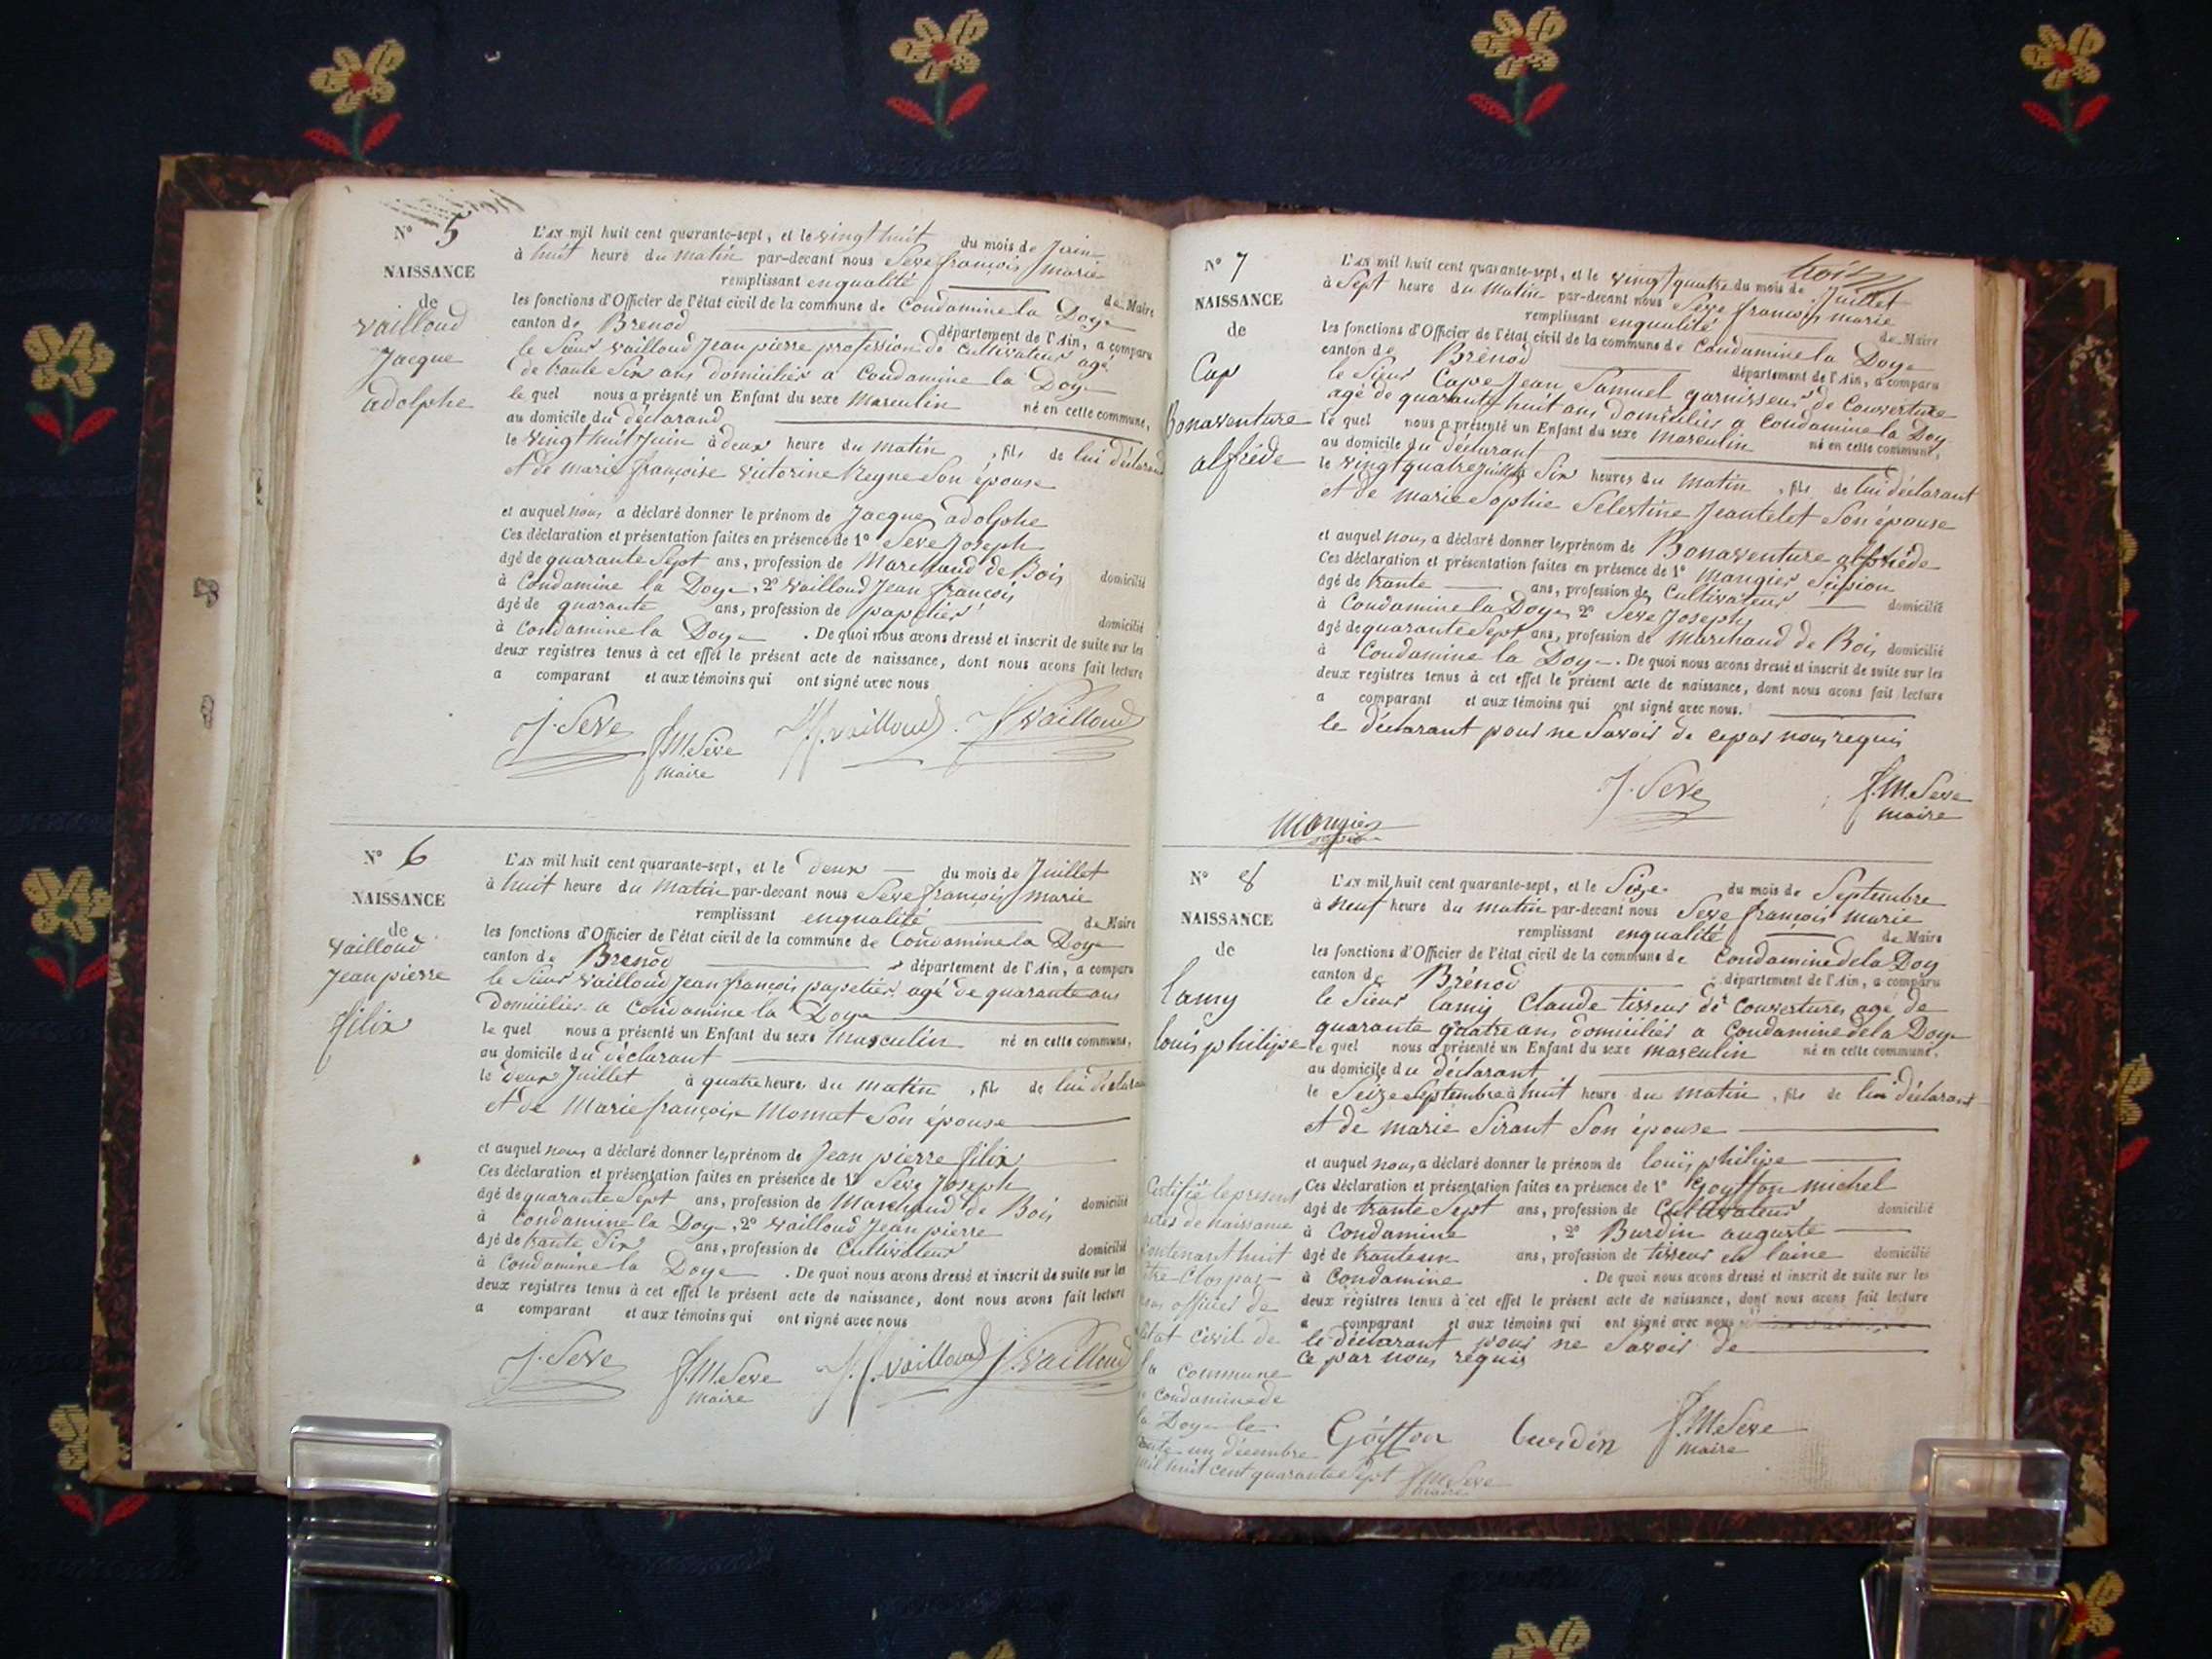 N° 5
NAISSANCE
de
Vailloud
Jacque
adolphe
L'AN mil huit cent quarante-sept, et le vingt huit du mois de Juin
à huit heure du Matin par-devant nous Seve françois marie
remplissant enqualité de Maire
les fonctions d'Officier de l'état civil de la commune de Condamine la Doye
canton de Brenod département de l'Ain, a comparu
le Sieur Vailloud Jean pierre profession de Cultivateur agé
de trante Six ans domicilier a Condamine la Doye
le quel nous a présenté un Enfant du sexe Masculin né en cette commune,
au domicile du déclarand
le vingt huit Juin à deux heure du matin, fils de lui déclarand
et de marie françoise victorine Neyne Son épouse
et auquel nous a déclaré donner le prénom de Jacque adolphe
Ces déclaration et présentation faites en présence de 1° Seve Joseph
âgé de quarante Sept ans, profession de Marchand de Bois domicilié
à Condamine la Doye, 2° Vailloud Jean françois
âgé de quarante ans, profession de papetier domicilié
à Condamine la Doye. De quoi nous avons dressé et inscrit de suite sur les
deux registres tenus à cet effet le présent acte de naissance, dont nous avons fait lecture
a comparant et aux témoins qui ont signé avec nous
J. Seve f.M. Seve J f. vailloud J Vailloud
maire
N° 6
NAISSANCE
de
Vailloud
Jean pierre
filix
L'AN mil huit cent quarante-sept, et le deux du mois de Juillet
à huit heure du Matin par-devant nous Seve françois marie
remplissant enqualité de Maire
les fonctions d'Officier de l'état civil de la commune de Condamine la Doye
canton de Brenod département de l'Ain, a comparu
le Sieur Vailloud Jean françois papetier agé de quarante ans
Domicilier a Condamine la Doye
le quel nous a présenté un Enfant du sexe Masculin né en cette commune,
au domicile du déclarant
le deux Juillet à quatre heure du matin, fils de lui déclarant
et de Marie françoise Monnet Son épouse
et auquel nous a déclaré donner les prénom de Jean pierre filix
Ces déclaration et présentation faites en présence de 1° Seve Joseph
âgé de quarante Sept ans, profession de Marchand de Bois domicilié
à Condamine la Doye, 2° Vailloud Jean pierre
âgé de trante Six ans, profession de Cultivateur domicilié
à Condamine la Doye. De quoi nous avons dressé et inscrit de suite sur les
deux registres tenus à cet effet le présent acte de naissance, dont nous avons fait lecture
a comparant et aux témoins qui ont signé avec nous
J. Seve f.M. Seve J. f. vailloud J. Vailloud
maire
N° 7
NAISSANCE
de
Cap
Bonaventure
alfrède
L'AN mil huit cent quarante-sept, et le vingt quatre du mois de Juillet
à Sept heure du Matin par-devant nous Seve françois marie
remplissant enqualité de Maire
les fonctions d'Officier de l'état civil de la commune de Condamine la Doye
canton de Brénod département de l'Ain, a comparu
le Sieur Cape Jean Samuel garnisseur de Couverture
agé de quarante huit ans domicilier a Condamine la Doy
le quel nous a présenté un Enfant du sexe masculin né en cette commune,
au domicile du déclarant
le vingt quatre Juillet Six heures du matin, fils de lui déclarant
et de marie Sophie Selestine Jeantelet Son épouse
et auquel nous a déclaré donner les prénom de Bonaventure alfrède
Ces déclaration et présentation faites en présence de 1° Mangier Sipion
âgé de trante ans, profession de Cultivateur domicilié
à Condamine la Doye, 2° Seve Joseph
âgé de quarante Sept ans, profession de marchand de Bois domicilié
à Condamine la Doye. De quoi nous avons dressé et inscrit de suite sur les
deux registres tenus à cet effet le présent acte de naissance, dont nous avons fait lecture
a comparant et aux témoins qui ont signé avec nous.
le déclarant pour ne Savoir de ce par nous requis
J. Seve f.M. Seve
maire
Mangier
N° 8
NAISSANCE
de
lamy
louis philipe
L'AN mil huit cent quarante-sept, et le Seize du mois de Septembre
à neuf heure du matin par-devant nous Seve françois marie
remplissant enqualité de Maire
les fonctions d'Officier de l'état civil de la commune de Condamine de la Doy
canton de Brénod département de l'Ain, a comparu
le Sieur lamy Claude tisseur de Couvertures age de
quarante quatre ans domicilier a Condamine de la Doye
le quel nous a présenté un Enfant du sexe masculin né en cette commune,
au domicile du déclarant
le Seize Septembre à huit heure du matin, fils de lui déclarant
et de marie Sirant Son épouse
et auquel nous a déclaré donner le prénom de louis philipe
Ces déclaration et présentation faites en présence de 1° Goyffon michel
âgé de trante Sept ans, profession de Cultivateur domicilié
à Condamine, 2° Burdin auguste
âgé de tranteun ans, profession de tisseur en laine domicilié
à Condamine. De quoi nous avons dressé et inscrit de suite sur les
deux registres tenus à cet effet le présent acte de naissance, dont nous avons fait lecture
a comparant et aux témoins qui ont signé avec nous
le déclarant pour ne Savoir de
ce par nous requis
Goiffon burdin f.M. Seve
maire
Certifié le present
actes de naissance
Contenant huit
être Clos par
nous officier de
état civil de
la commune
de Condamine de
la Doye le
trente un décembre
mil huit cent quarante Sept f.M. Seve
maire